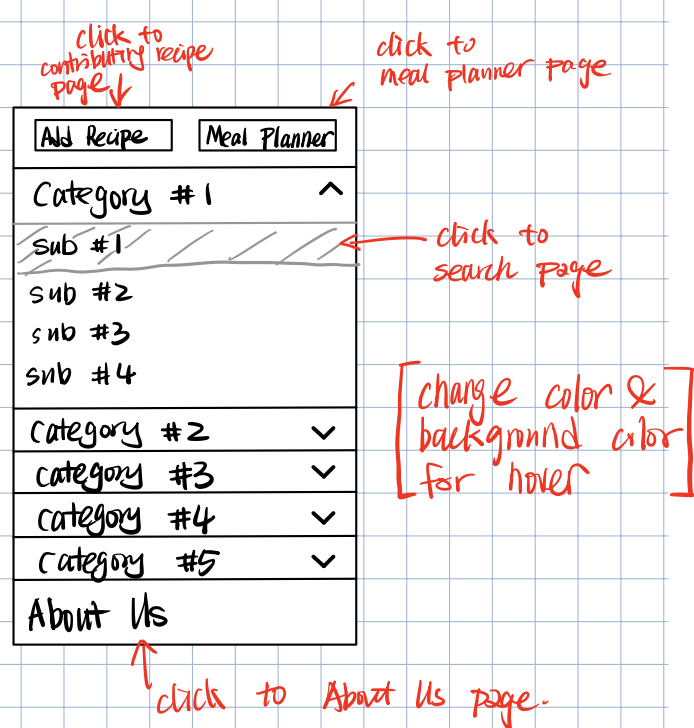 click to
contributing recipe
page
click to
meal planner page
Add Recipe
Meal Planner
Category #1
sub #1
click to
search page
sub #2
sub #3
sub #4
[change color &
background color
for hover]
category #2
category #3
category #4
category #5
About Us
click to About Us page.